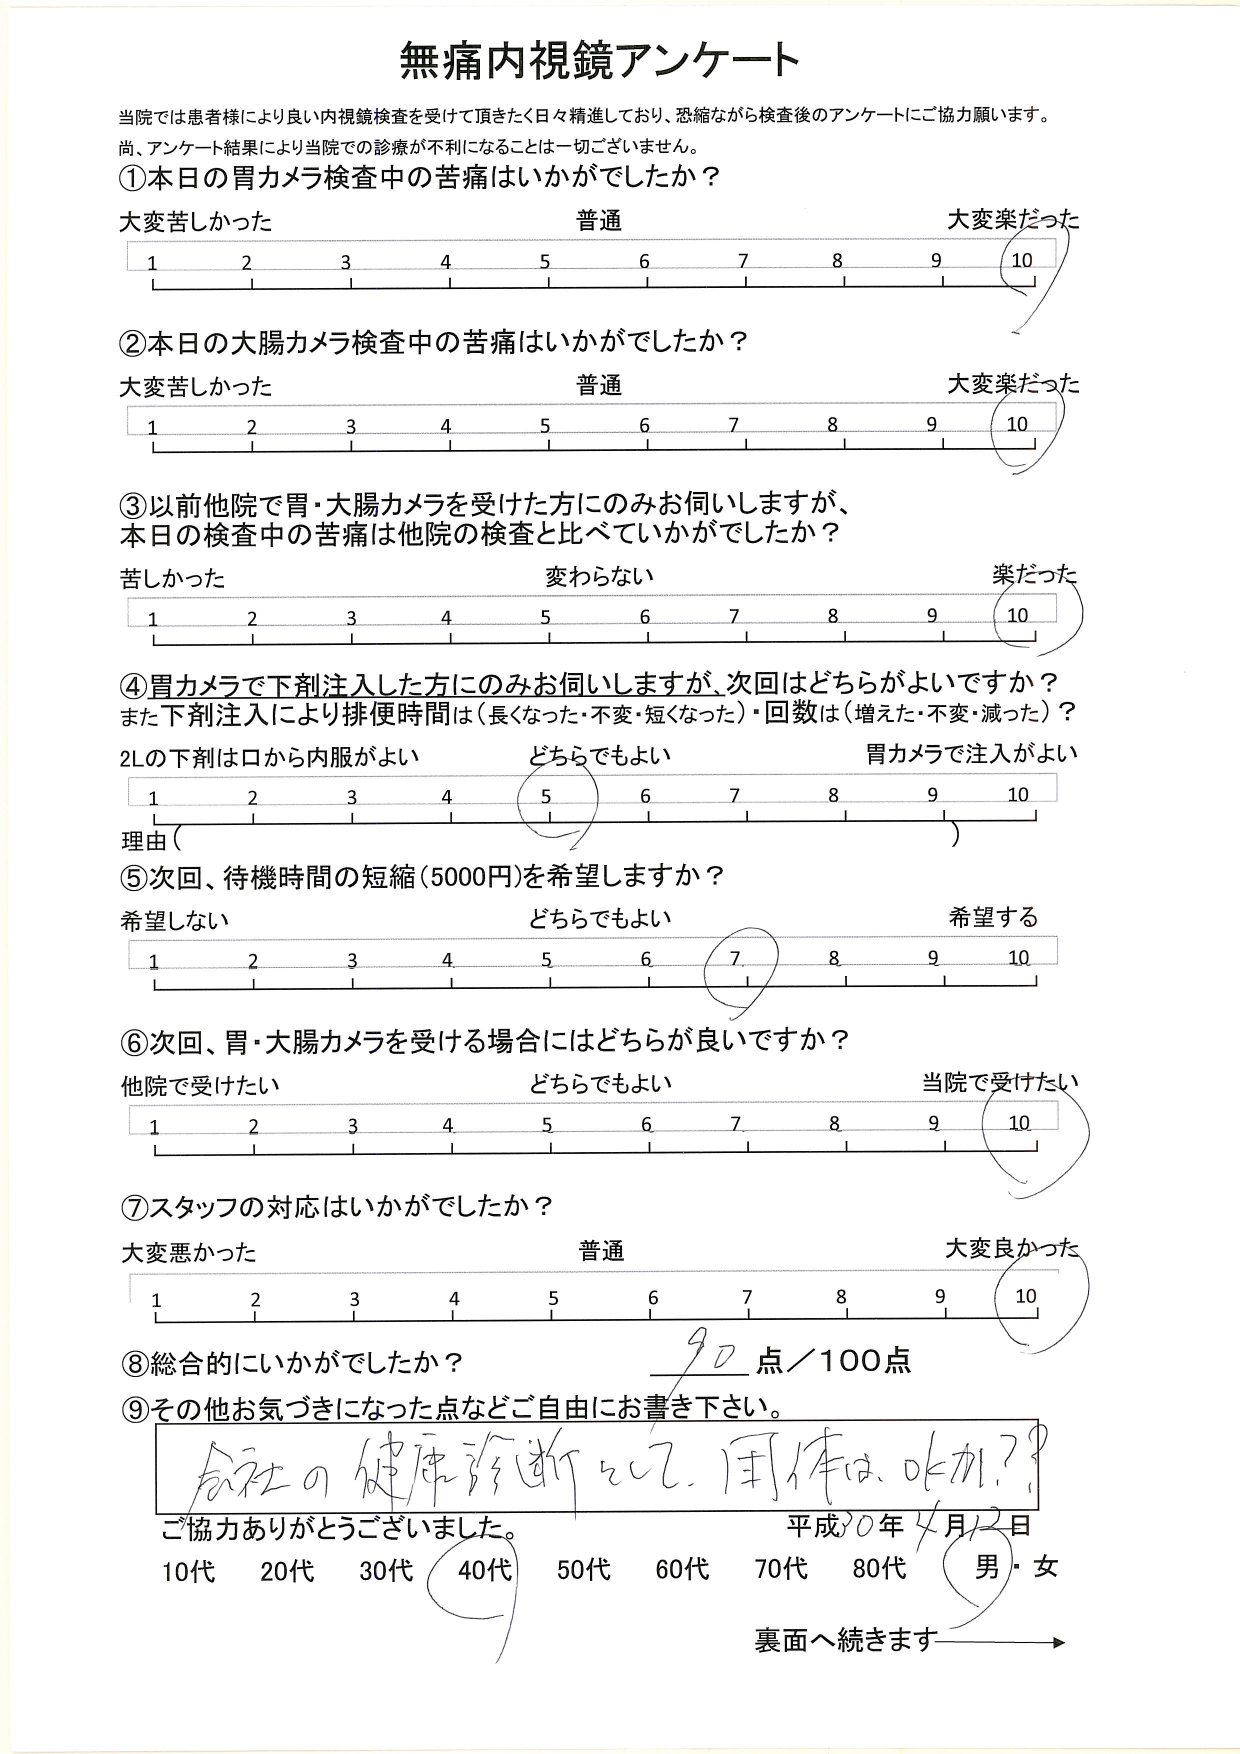 無痛内視鏡アンケート
当院では患者様により良い内視鏡検査を受けて頂きたく日々精進しており、恐縮ながら検査後のアンケートにご協力願います。
尚、アンケート結果により当院での診療が不利になることは一切ございません。
①本日の胃カメラ検査中の苦痛はいかがでしたか？
大変苦しかった 普通 大変楽だった
1 2 3 4 5 6 7 8 9 10
②本日の大腸カメラ検査中の苦痛はいかがでしたか？
大変苦しかった 普通 大変楽だった
1 2 3 4 5 6 7 8 9 10
③以前他院で胃・大腸カメラを受けた方にのみお伺いしますが、
本日の検査中の苦痛は他院の検査と比べていかがでしたか？
苦しかった 変わらない 楽だった
1 2 3 4 5 6 7 8 9 10
④胃カメラで下剤注入した方にのみお伺いしますが、次回はどちらがよいですか？
また下剤注入により排便時間は（長くなった・不変・短くなった）・回数は（増えた・不変・減った）？
2Lの下剤は口から内服がよい どちらでもよい 胃カメラで注入がよい
1 2 3 4 5 6 7 8 9 10
理由（ ）
⑤次回、待機時間の短縮（5000円）を希望しますか？
希望しない どちらでもよい 希望する
1 2 3 4 5 6 7 8 9 10
⑥次回、胃・大腸カメラを受ける場合にはどちらが良いですか？
他院で受けたい どちらでもよい 当院で受けたい
1 2 3 4 5 6 7 8 9 10
⑦スタッフの対応はいかがでしたか？
大変悪かった 普通 大変良かった
1 2 3 4 5 6 7 8 9 10
⑧総合的にいかがでしたか？ 90点／100点
⑨その他お気づきになった点などご自由にお書き下さい。
会社の健康診断として、団体は、OKか??
ご協力ありがとうございました。 平成30年4月12日
10代 20代 30代 40代 50代 60代 70代 80代 男・女
裏面へ続きます